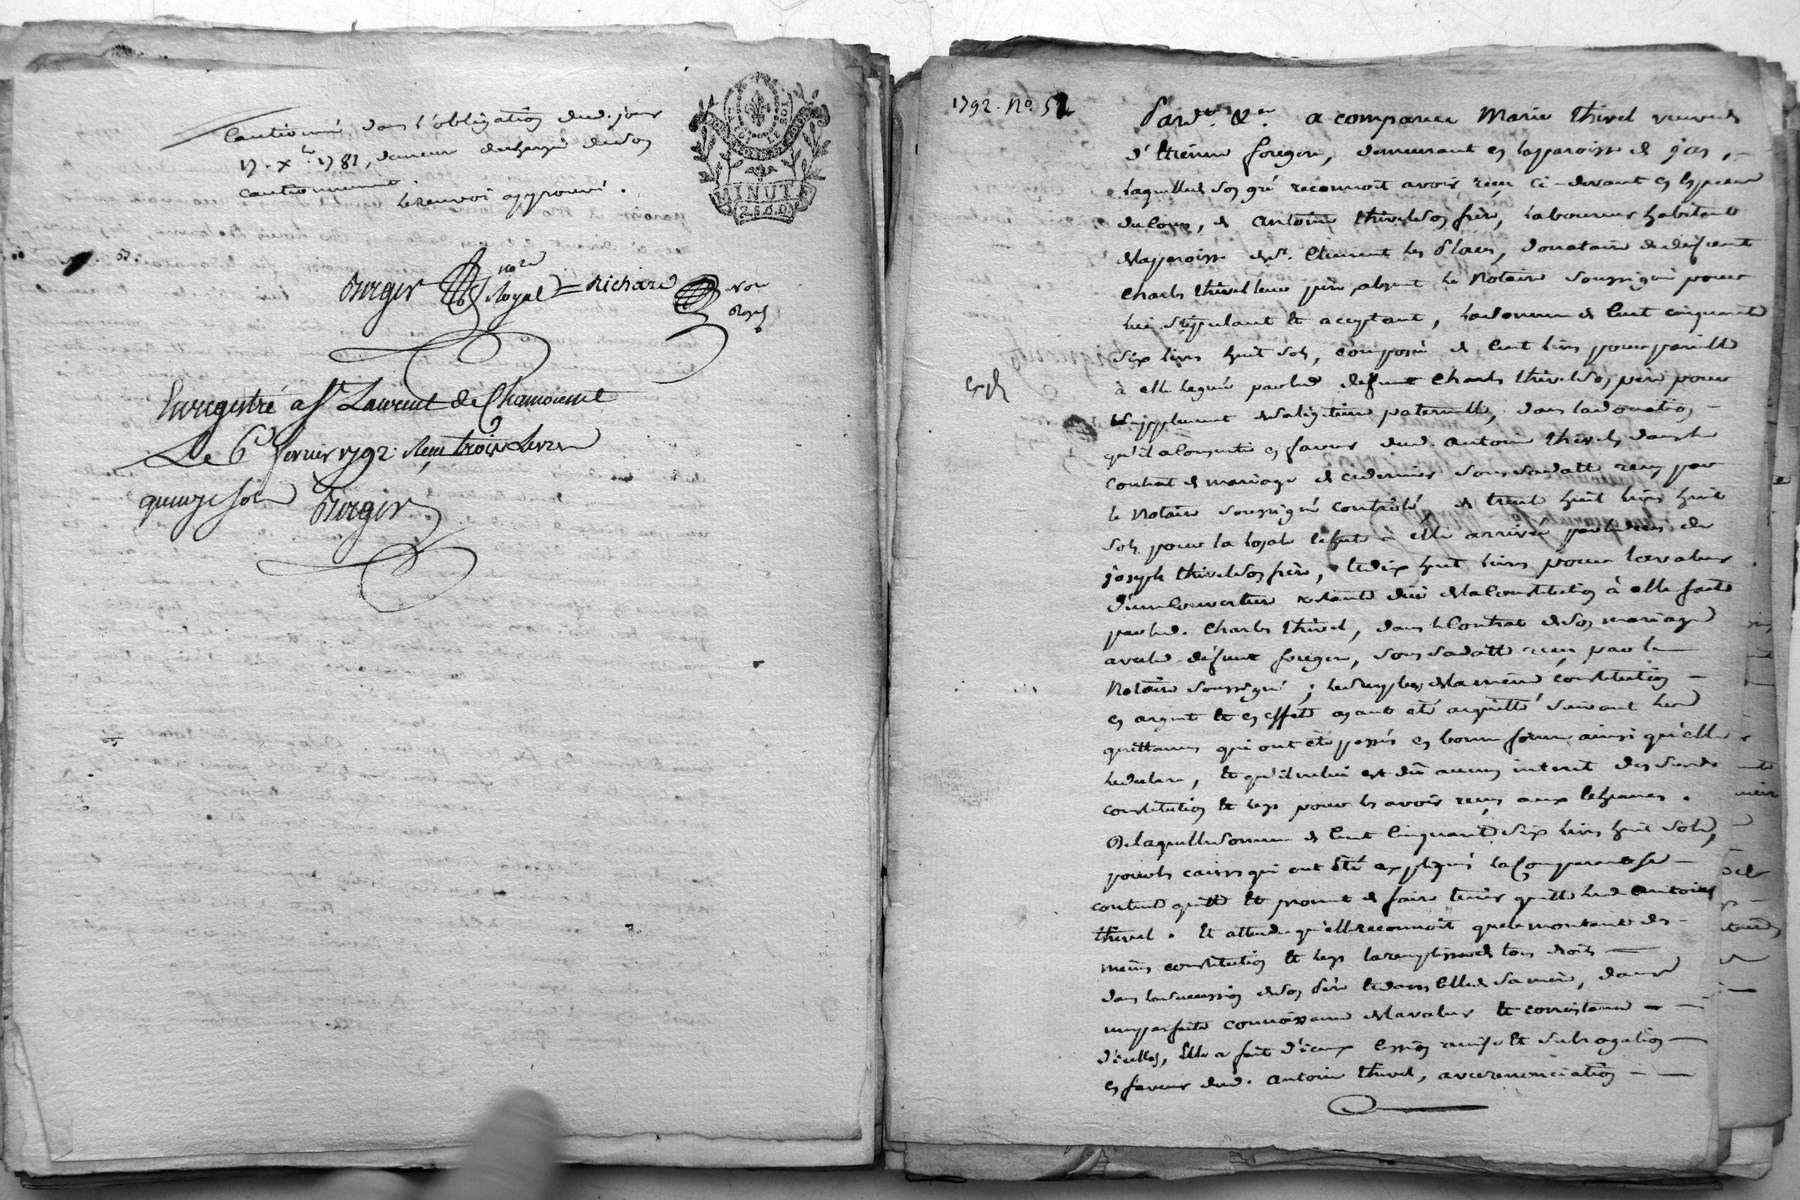 Cautionné dans l'obligation dud. jour
17. Xbre 1781, demeure déchargé de son
cautionnement le renvoi approuvé.
MINUTE
Berger nore Royal Richard Nore Royal
Enregistré a St. Laurent de Chamousset
Le 6e fevrier 1792. Reçu trois Livres
quinze sols Berger
1792. No. 52
Pardt. &a. a comparu Marie thivel veuve
d'Etienne fougere, demeurant en la parroisse de
laquelle de son gré reconnoit avoir reçu ci-devant en espece
du cours, de Antoine thivel son frère, laboureur habitant
de la parroisse de St. Clement les Places, donataire du defunt
Charles thivel leur père absent le Notaire soussigné pour
lui stipulant et acceptant, la somme de Cent cinquante
six livres huit sols, composée de Cent livres pour pareille
à elle leguée par led. defunt Charles thivel son père pour
supplement de la legitime paternelle, dans la donation
qu'il a consentie en faveur dud. antoine thivel, dans le
contrat de mariage de ce dernier sous sa datte reçu par
le Notaire soussigné controlé, de trente huit livres huit
sols pour la portion échute à elle arrivée par le décès de
joseph thivel son frère, et dix huit livres pour la valeur
d'une couverture restante düe de la Constitution à elle faite
par led. Charles thivel, dans le Contrat de son mariage
avec led. defunt fougere, sous sa datte reçu par le
Notaire soussigné; le surplus de la même constitution
en argent et en effets ayant été acquitté suivant les
quittances qui ont été passées en bonne forme, ainsi qu'elle
le declare, et qu'il ne lui est dû aucun interet desd.
constitution et legs pour les avoir reçus aux échéances.
De laquelle somme de Cent Cinquante six livres huit sols,
pour les causes qui ont été expliquées la Comparante se
contente quitte et promet de faire tenir quitte led. antoine
thivel. Et attendu qu'elle reconnoit que le montant des
mêmes constitution et legs la remplissent de tous droits
dans la succession de son père et dans celle de sa mère, d'avoir
une parfaite connoissance de la valeur et consistance
d'icelles, Elle a fait d'iceux Cession remise et subrogation
en faveur dud. antoine thivel, avec renonciation